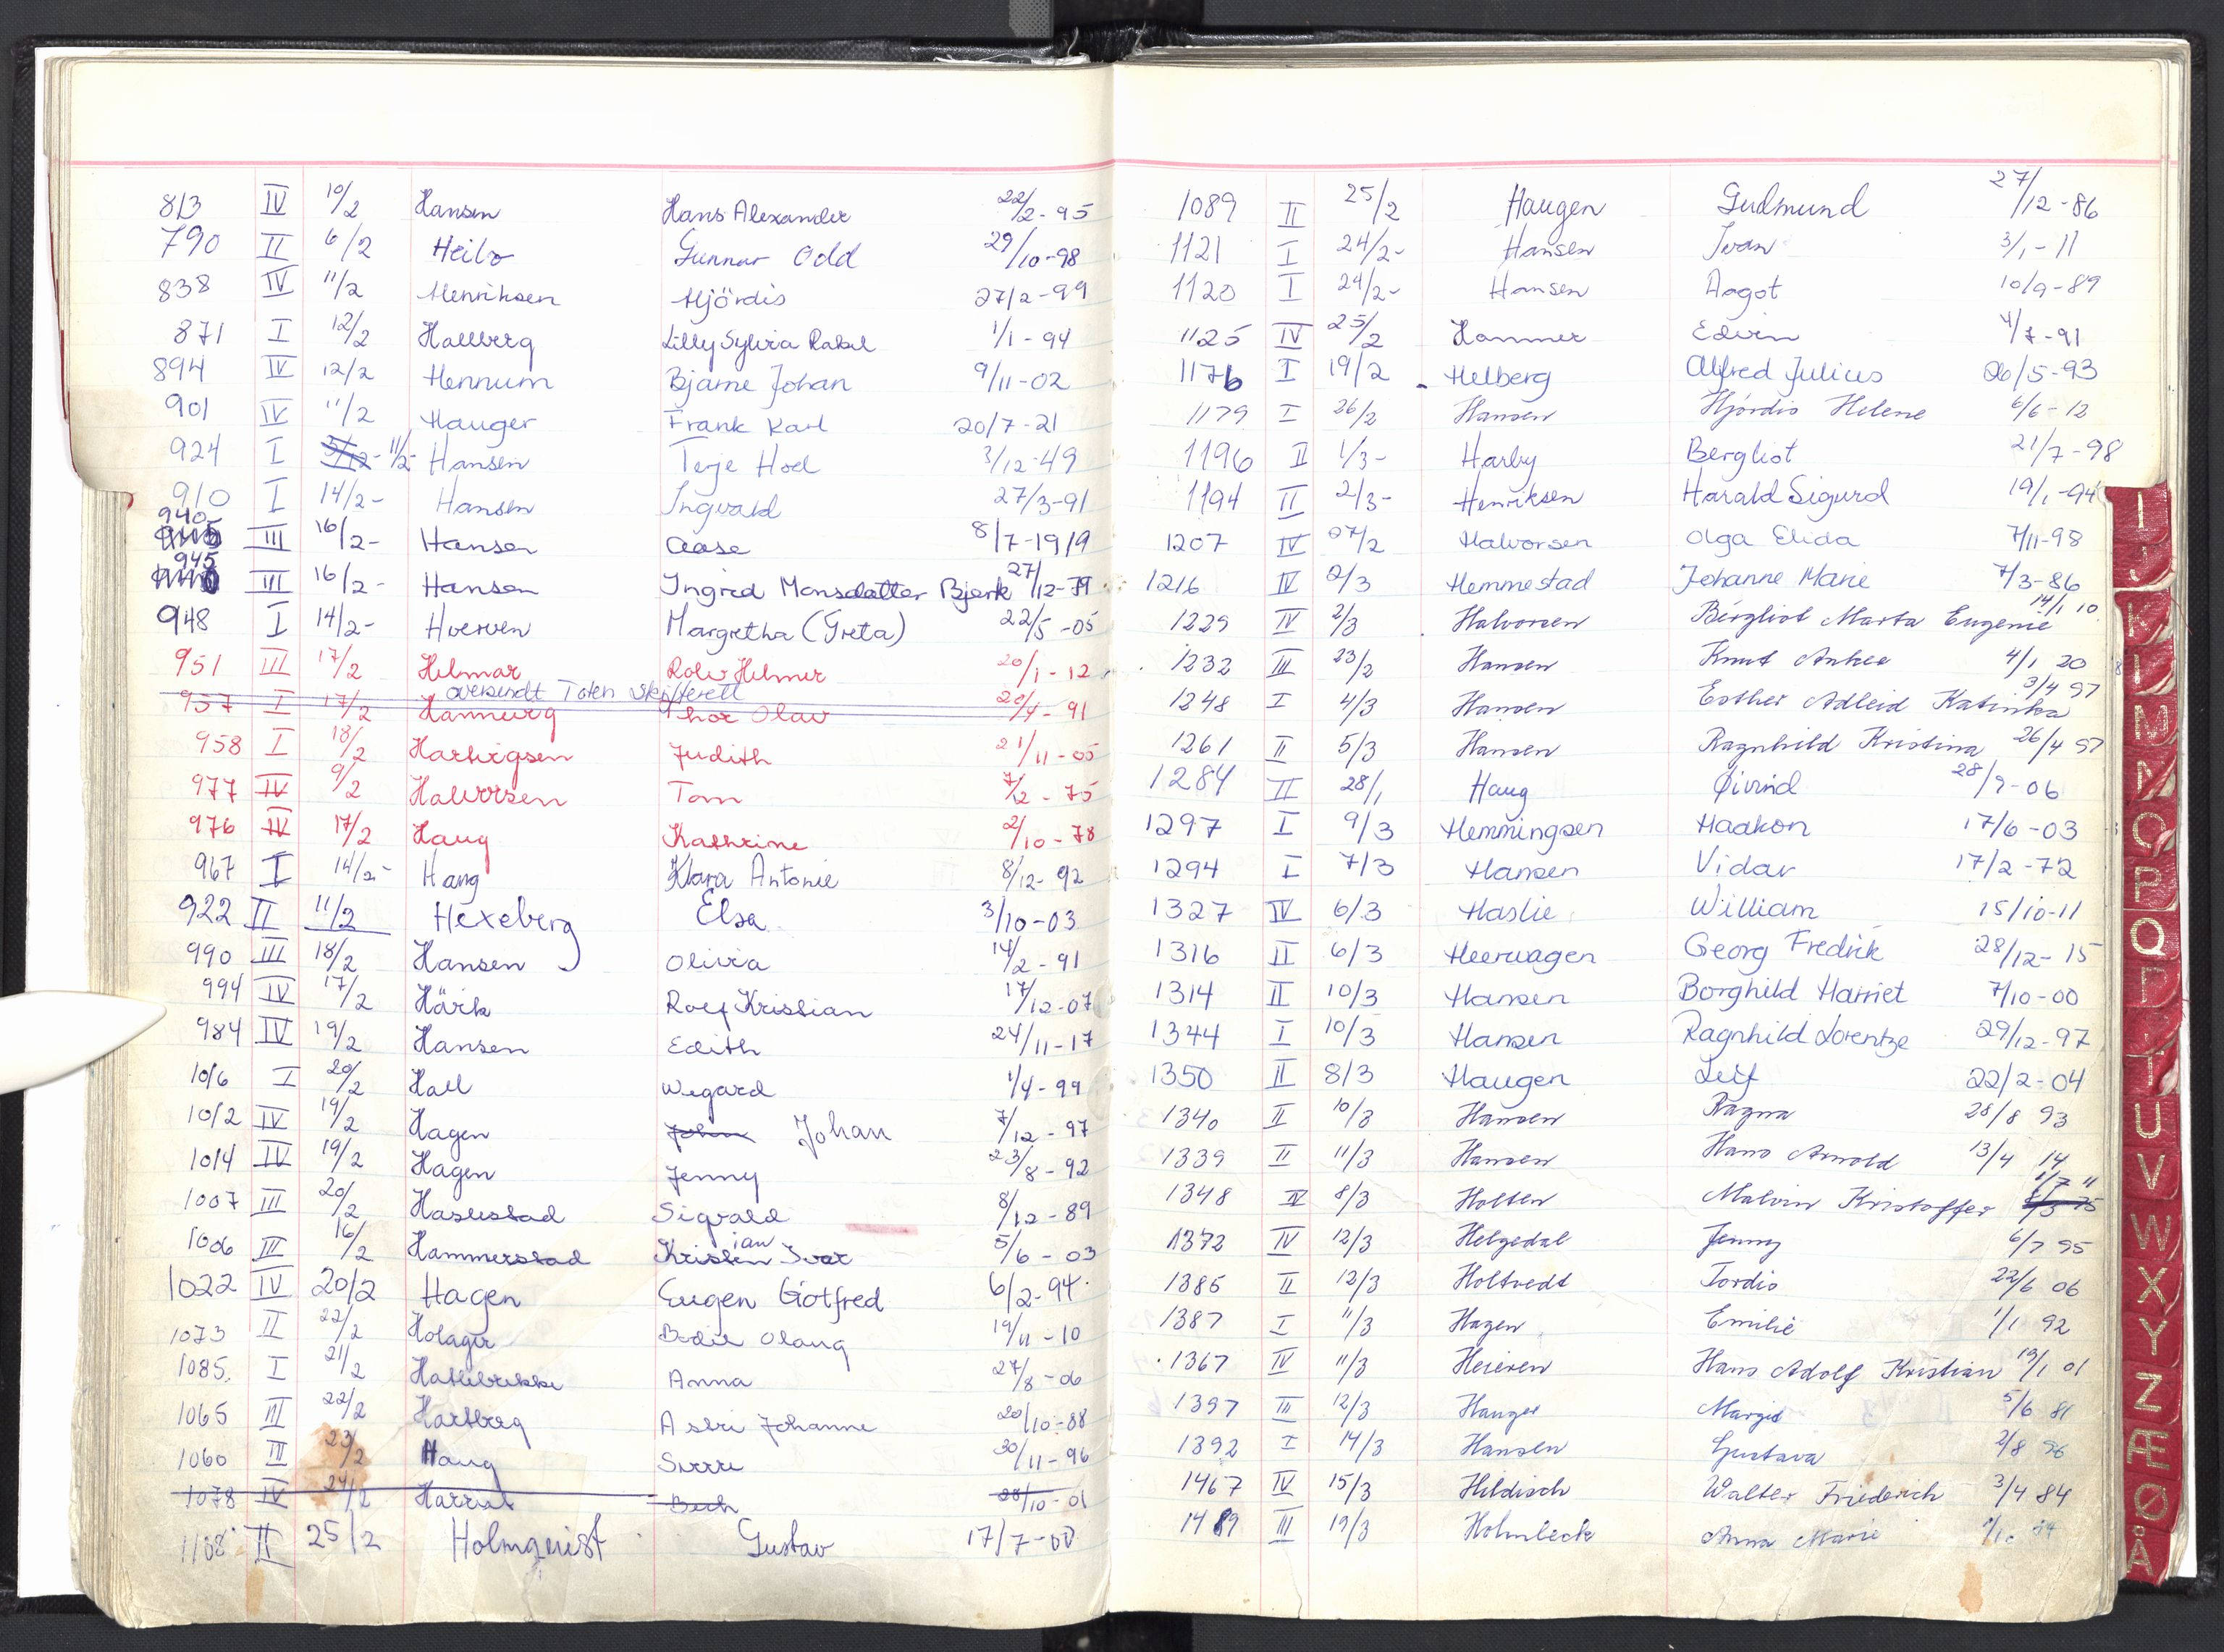 813 IV 10/2 Hansen Hans Alexander 22/2-95
790 II 6/2 Heilo Gunnar Odd 29/10-98
838 IV 11/2 Henriksen Hjördis 27/2-99
871 I 12/2 Hallberg Lilly Sylvia Rakel 1/1-94
894 IV 12/2 Hennum Bjarne Johan 9/11-02
901 IV 11/2 Hauger Frank Karl 20/7-21
924 I 5/12- 11/2- Hansen Terje Hoel 3/12-49
910 I 14/2- Hansen Ingvald 27/3-91
940 III 16/2- Hansen Aase 8/7-1919
945 III 16/2- Hansen Ingrid Monsdatter Bjerk 27/12-79
948 I 14/2- Hverven Margretha (Greta) 22/5-05
951 III 17/2 Helmar Rolv Helmer 20/1-12
oversendt Toten skifterett
957 I 17/2 Hannevig Thor Olav 20/4-91
958 I 18/2 Hartvigsen Judith 21/11-05
977 IV 9/2 Halvorsen Tom 7/2-75
976 IV 17/2 Haug Kathrine 2/10-78
967 I 14/2- Haug Klara Antonie 8/12-92
922 II 11/2 Hexeberg Elsa 3/10-03
990 III 18/2 Hansen Olivia 14/2-91
994 IV 17/2 Hårk Rolf Kristian 17/12-07
984 IV 19/2 Hansen Edith 24/11-17
1016 I 20/2 Hall Wegard 1/4-99
1012 IV 19/2 Hagen Johan Johan 7/12-97
1014 IV 19/2 Hagen Jenny 23/8-92
1007 III 20/2 Haslestad Sigvald 8/12-89
1006 III 16/2 Hammerstad Kristian Ivar 5/6-03
1022 IV 20/2 Hagen Eugen Gotfred 6/2-94
1073 II 22/2 Holager Bodil Olaug 19/11-10
1085 I 21/2 Hallebrekke Anna 27/8-06
1065 III 22/2 Hartberg Astri Johanne 20/10-88
1060 III 23/2 Haug Sverre 30/11-96
1078 IV 24/2 28/10-01
1108 II 25/2 Holmqvist Gustav 17/7-00
1089 II 25/2 Haugen Gudmund 27/12-86
1121 I 24/2- Hansen Ivan 3/1-11
1120 I 24/2- Hansen Aagot 10/9-89
1125 IV 25/2 Hammer Edvin 4/7-91
1176 I 19/2 Helberg Alfred Julius 26/5-93
1179 I 26/2 Hansen Hjórdis Helene 6/6-12
1196 II 1/3- Harby Bergliot 21/7-98
1194 II 2/3- Henriksen Harald Sigurd 19/1-94
1207 IV 27/2 Halvorsen Olga Elida 7/11-98
1216 IV 2/3 Hemmestad Johanne Marie 7/3-86
1229 IV 2/3 Halvorsen Bergliot Marta Eugenie 14/1 10
1232 III 23/2 Hansen Knut Anker 4/1 20
1248 I 4/3 Hansen Esther Adleid Katinka 3/4 97
1261 II 5/3 Hansen Ragnhild Kristina 26/4 97
1284 II 28/1 Haug Øivind 28/9-06
1297 I 9/3 Hemmingsen Haakon 17/6-03
1294 I 7/3 Hansen Vidar 17/2-72
1327 IV 6/3 Haslie William 15/10-11
1316 II 6/3 Heerwagen Georg Fredrik 28/12-15
1314 II 10/3 Hansen Borghild Harriet 7/10-00
1344 I 10/3 Hansen Ragnhild Lorentze 29/12-97
1350 II 8/3 Haugen Leif 22/2-04
1340 II 10/3 Hansen Ragna 28/8 93
1339 II 11/3 Hansen Hans Arnold 13/4 14
1348 IV 8/3 Holten Malvin Kristoffer 1/7 11
1372 IV 12/3 Helgedal Jenny 6/7 95
1385 II 12/3 Holtvedt Tordis 22/6 06
1387 I 11/3 Hagen Emilie 1/1 92
1367 IV 11/3 Heieren Hans Adolf Kristian 19/1 01
1397 III 12/3 Hauger Margit 5/6 81
1392 I 14/3 Hansen Gustava 2/8 96
1467 IV 15/3 Hildisch Walter Friederich 3/4 84
1489 III 19/3 Holmbeck Anna Marie
I
J
K
L
M
N
O
P
Q
R
T
U
V
W
X
Y
Z
Æ
Ø
Å